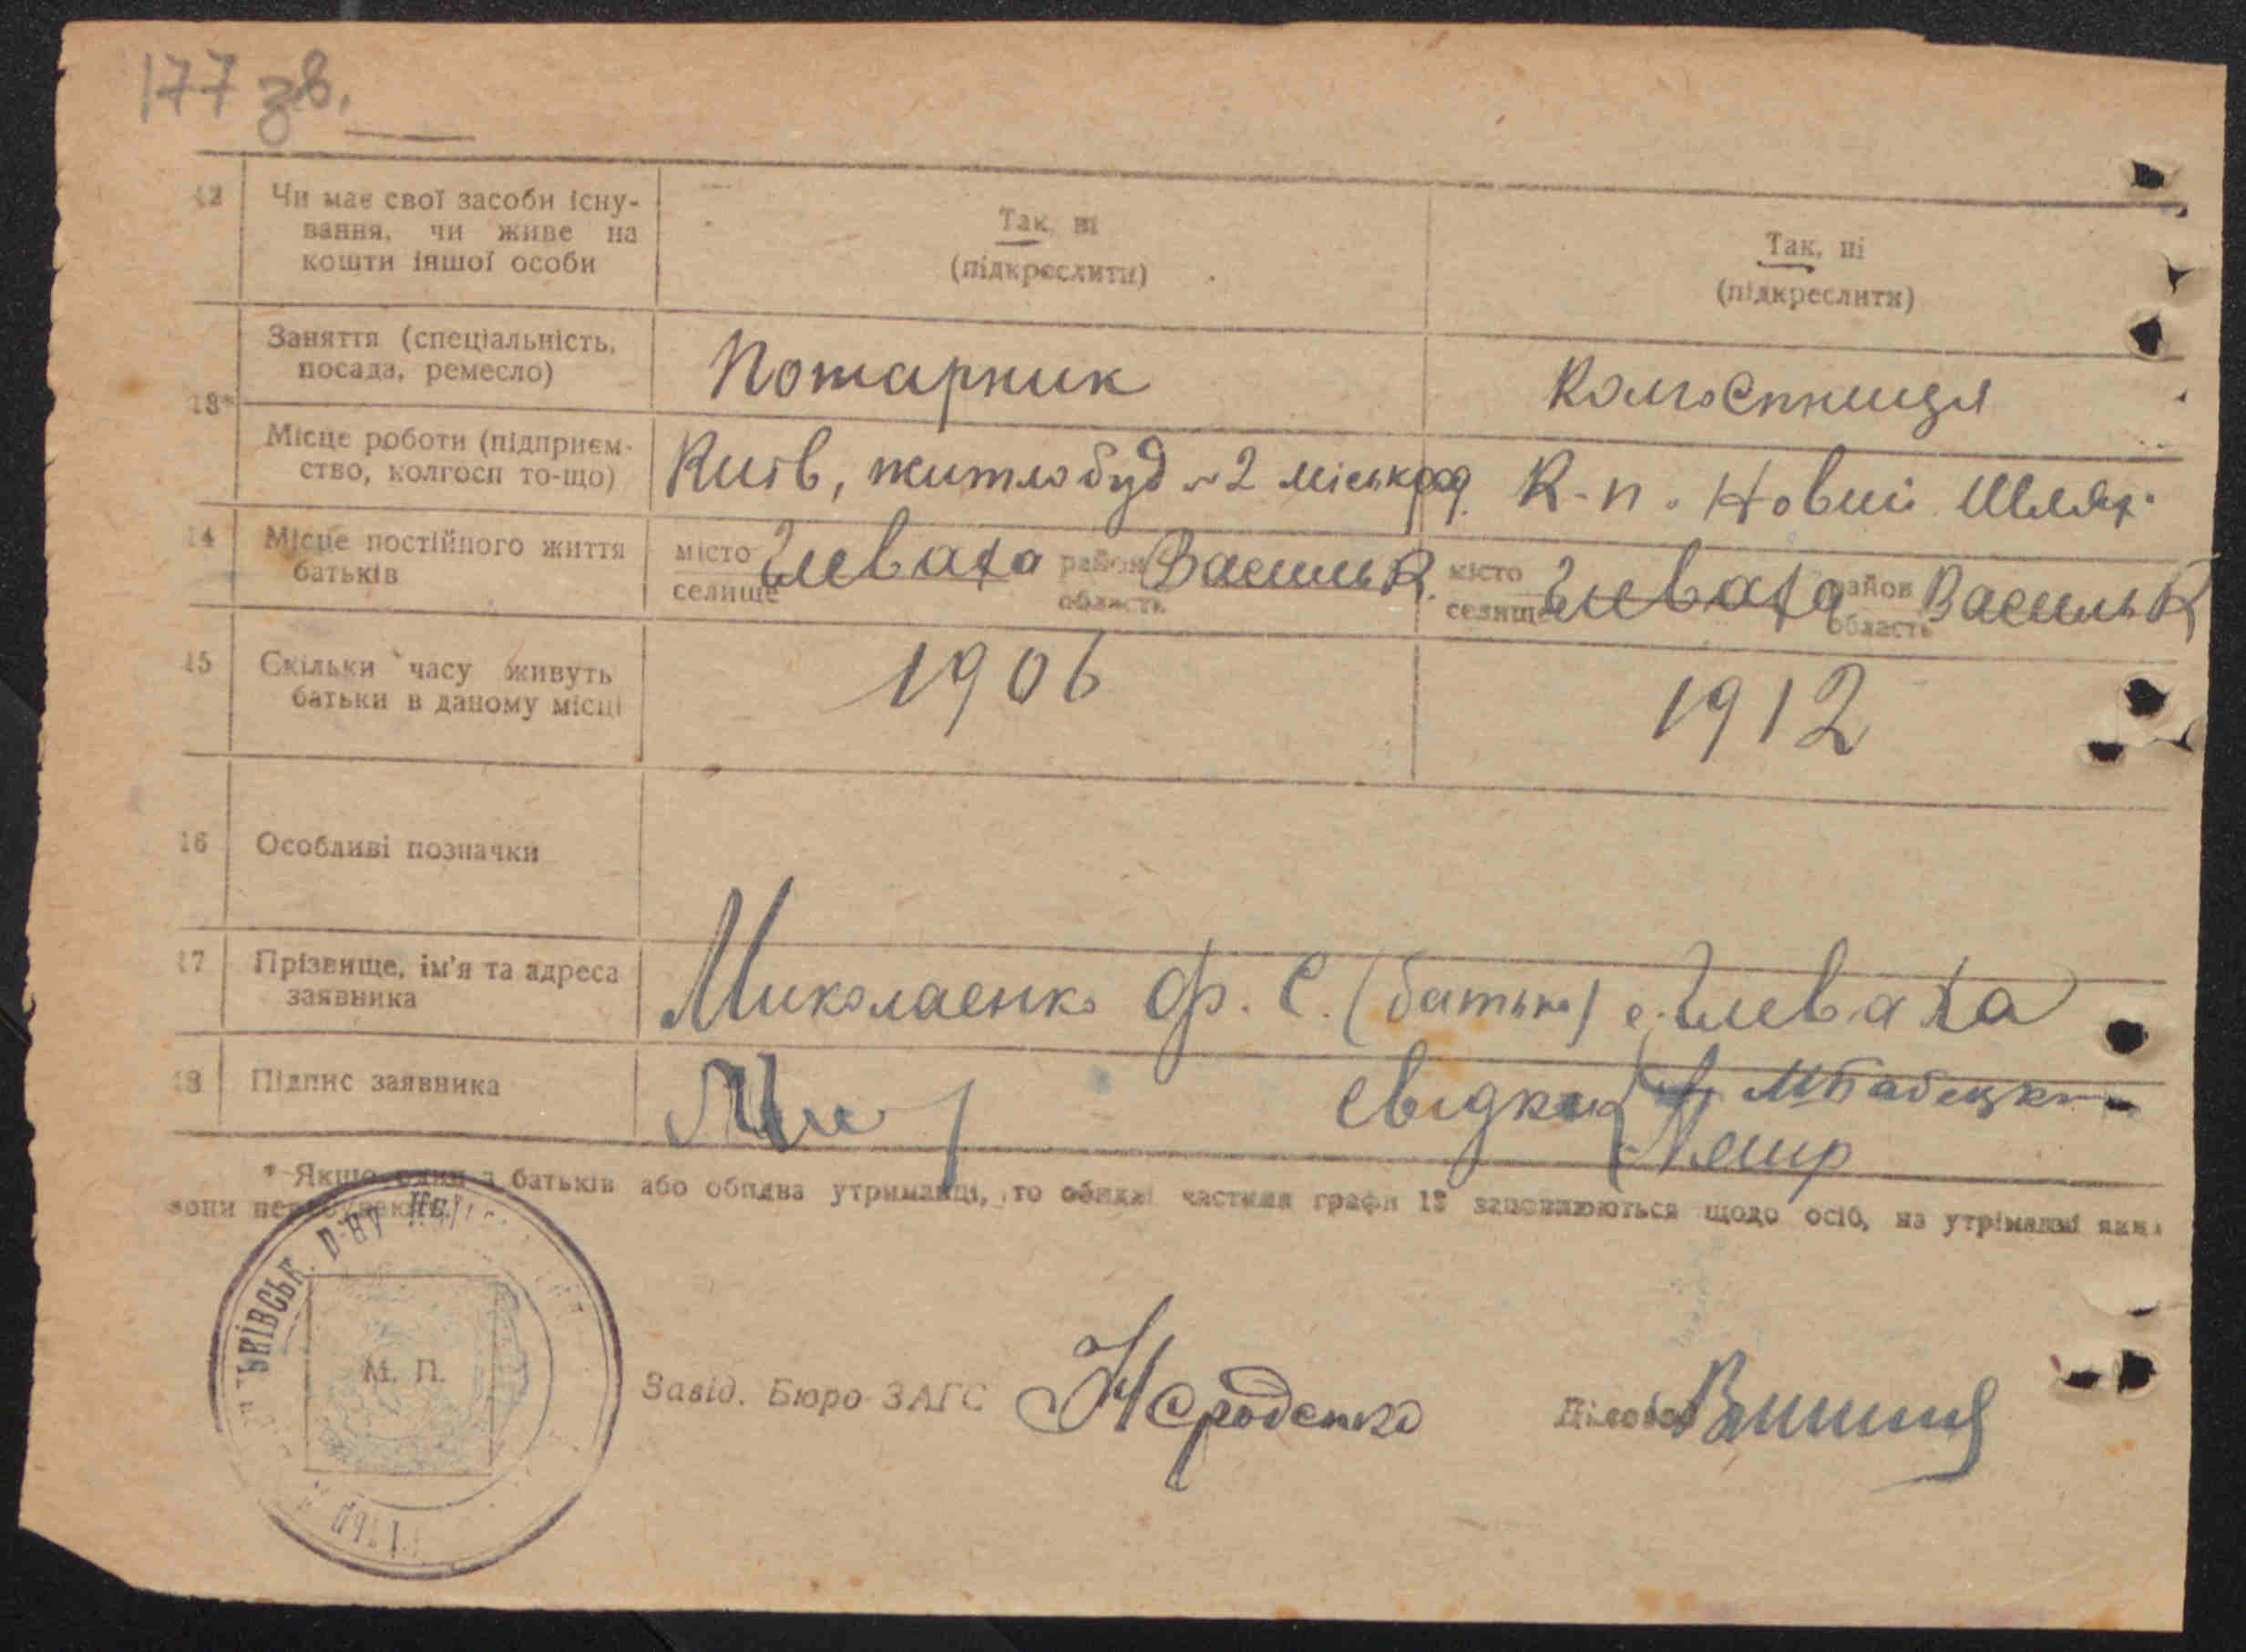 177 зв.
12 Чи має свої засоби існу-
вання, чи живе на
кошти іншої особи
Так, ні
(підкреслити)
Так, ні
(підкреслити)
13*
Заняття (спеціальність,
посада, ремесло)
Пожарник
Колгоспниця
Місце роботи (підприєм-
ство, колгосп то-що)
Київ, житлобуд №2 міськрад.
К-п. Новий Шлях.
14 Місце постійного життя
батьків
місто
селище
Глеваха
район
область
Васильк.
місто
селище
Глеваха
район
область
Васильк
15 Скільки часу живуть
батьки в даному місці
1906
1912
16 Особливі позначки
17 Прізвище, ім'я та адреса
заявника
Миколаенко Ф. С. (батько) с. Глеваха
18 Підпис заявника
свідки
* Якщо один з батьків або обидва утриманці, то обидві частини графи 13 заповнюються щодо осіб, на утриманні яких
вони перебувають.
ЬКІВСЬК. Р-НУ
М. П.
Завід. Бюро ЗАГС
Діловод